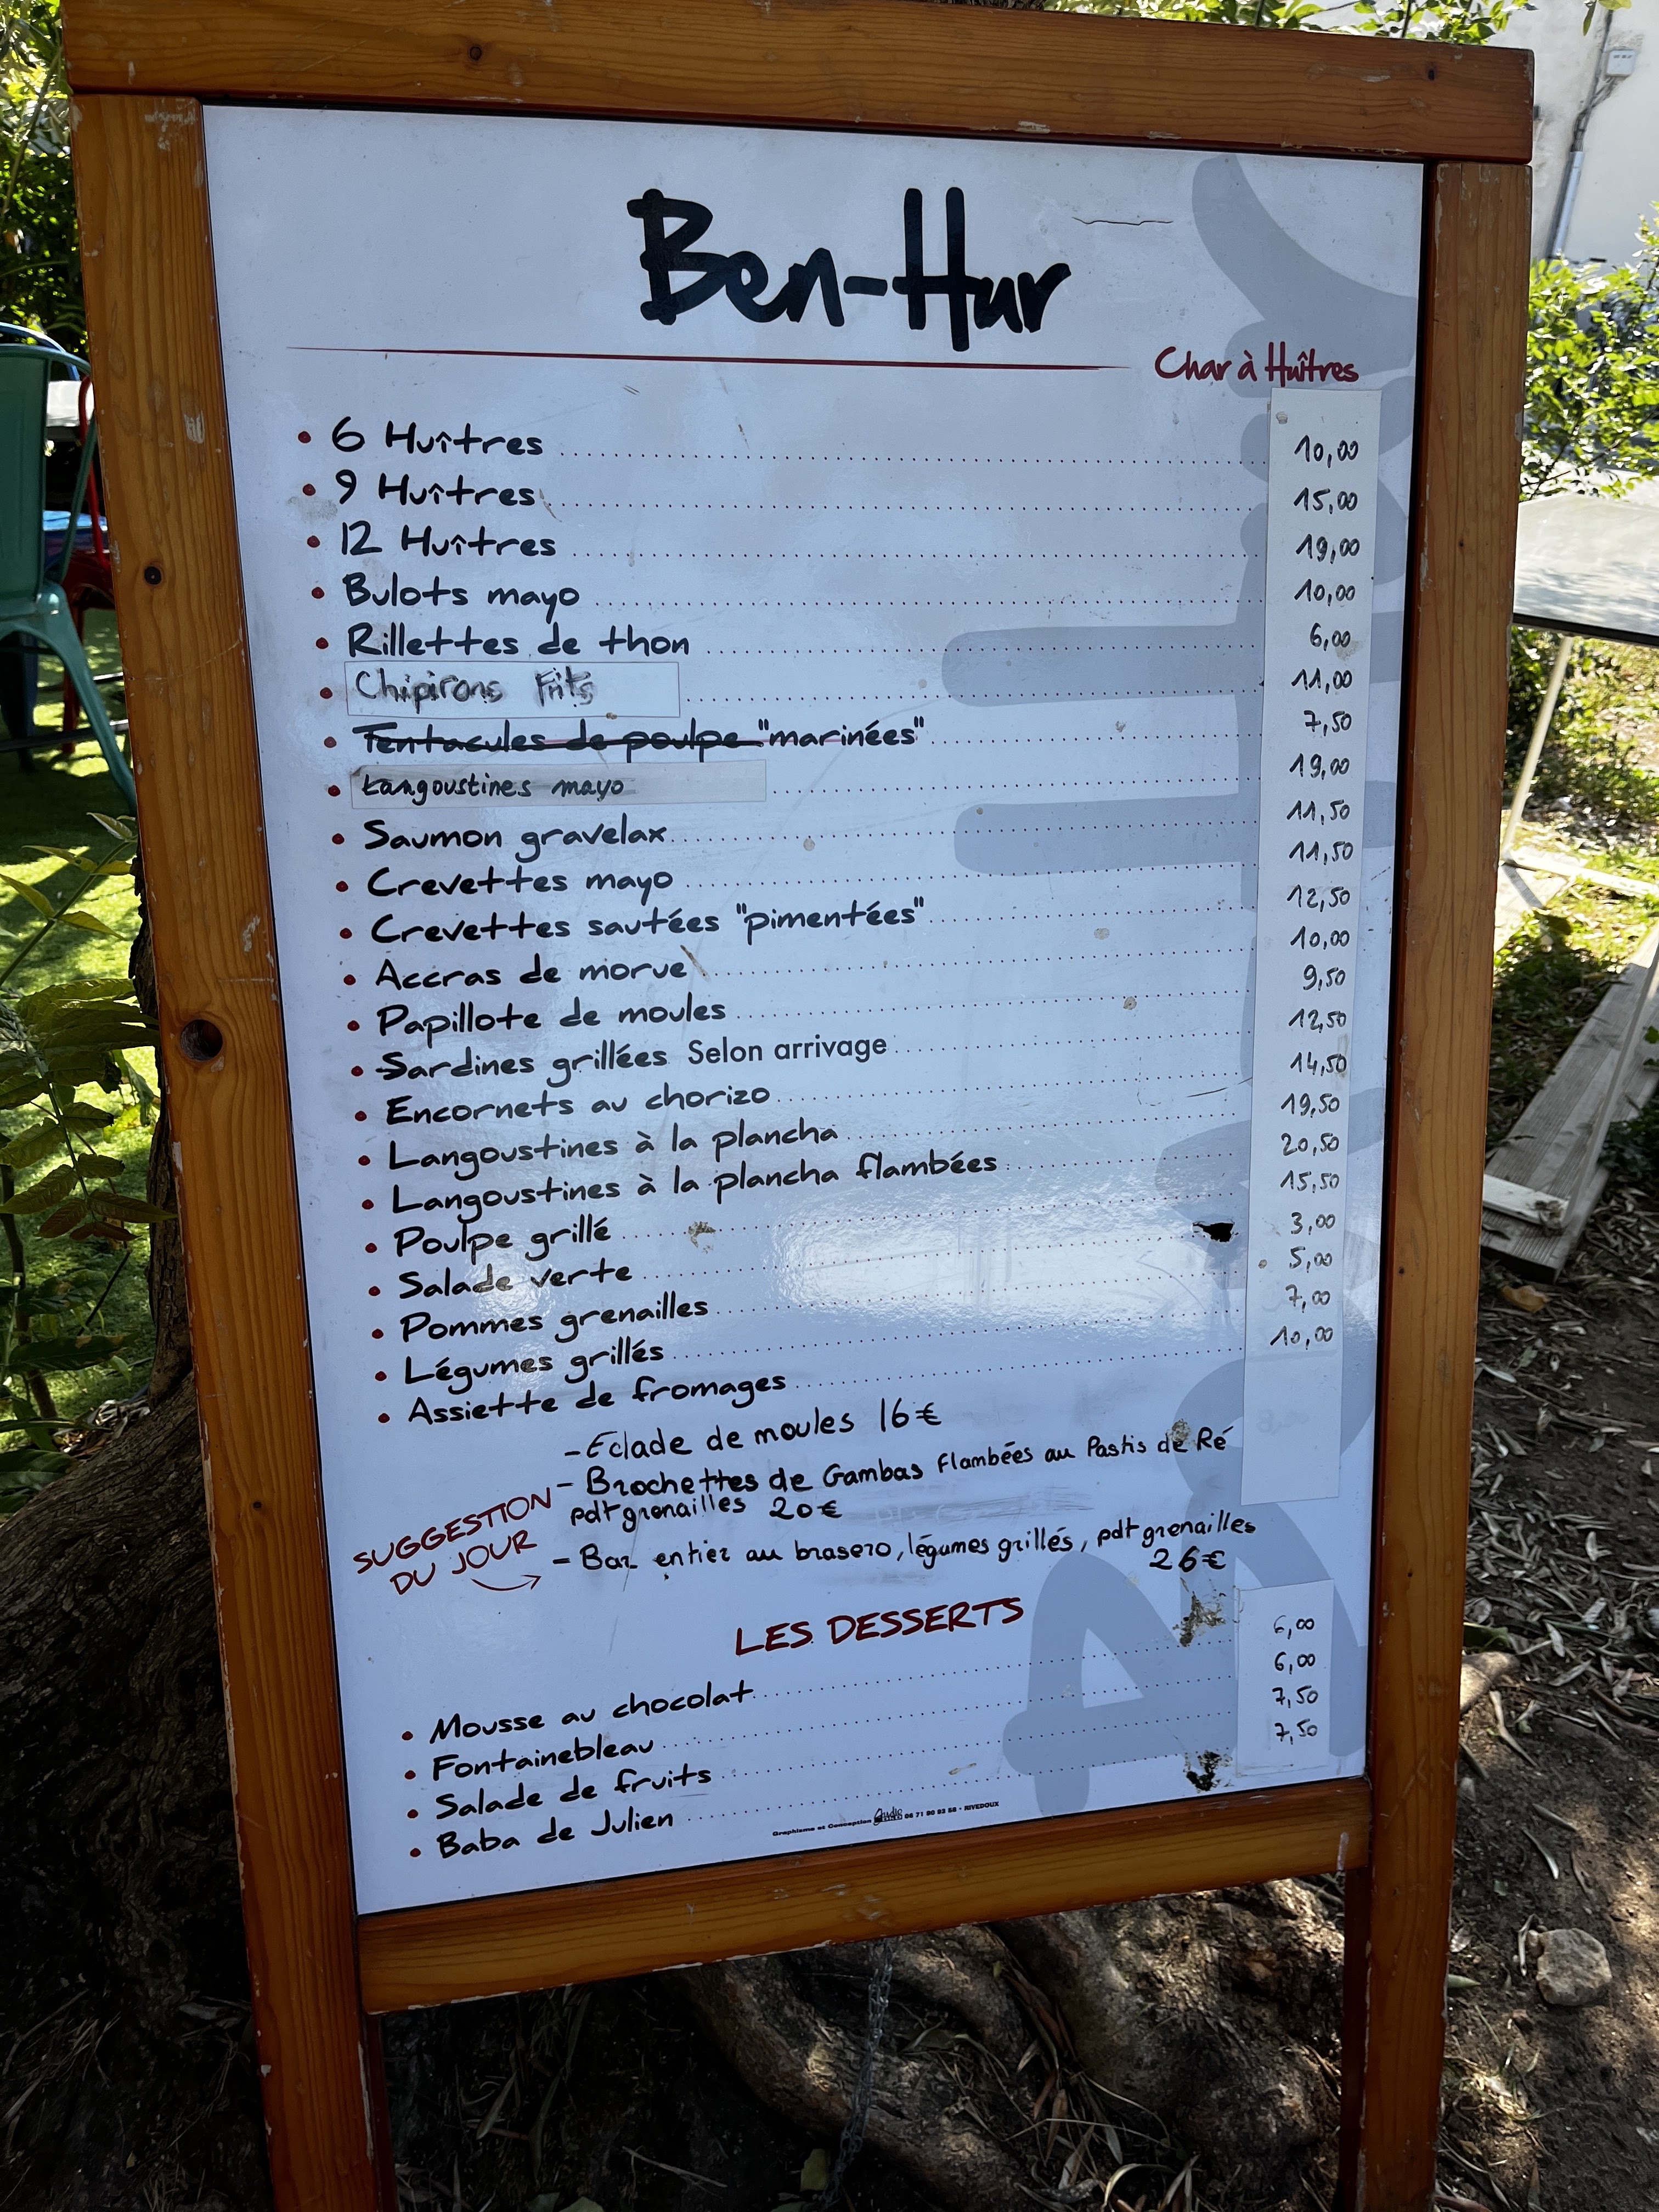 Ben-Hur
Char à Huîtres
6 Huîtres 10,00
9 Huîtres 15,00
12 Huîtres 19,00
Bulots mayo 10,00
Rillettes de thon 6,00
Chipirons Frits 11,00
Tentacules de poulpe "marinées" 7,50
Langoustines mayo 19,00
Saumon gravelax 11,50
Crevettes mayo 11,50
Crevettes sautées "pimentées" 12,50
Accras de morue 10,00
Papillote de moules 9,50
Sardines grillées Selon arrivage 12,50
Encornets au chorizo 14,50
Langoustines à la plancha 19,50
Langoustines à la plancha flambées 20,50
Poulpe grillé 15,50
Salade verte 3,00
Pommes grenailles 5,00
Légumes grillés 7,00
Assiette de fromages 10,00
SUGGESTION
DU JOUR
- Eclade de moules 16€
- Brochettes de Gambas Flambées au Pastis de Ré
pdt grenailles 20€
- Bar entier au brasero, légumes grillés, pdt grenailles
26€
LES DESSERTS
Mousse au chocolat 6,00
Fontainebleau 6,00
Salade de fruits 7,50
Baba de Julien 7,50
Graphisme et Conception Studio 06 71 90 93 58 - RIVEDOUX